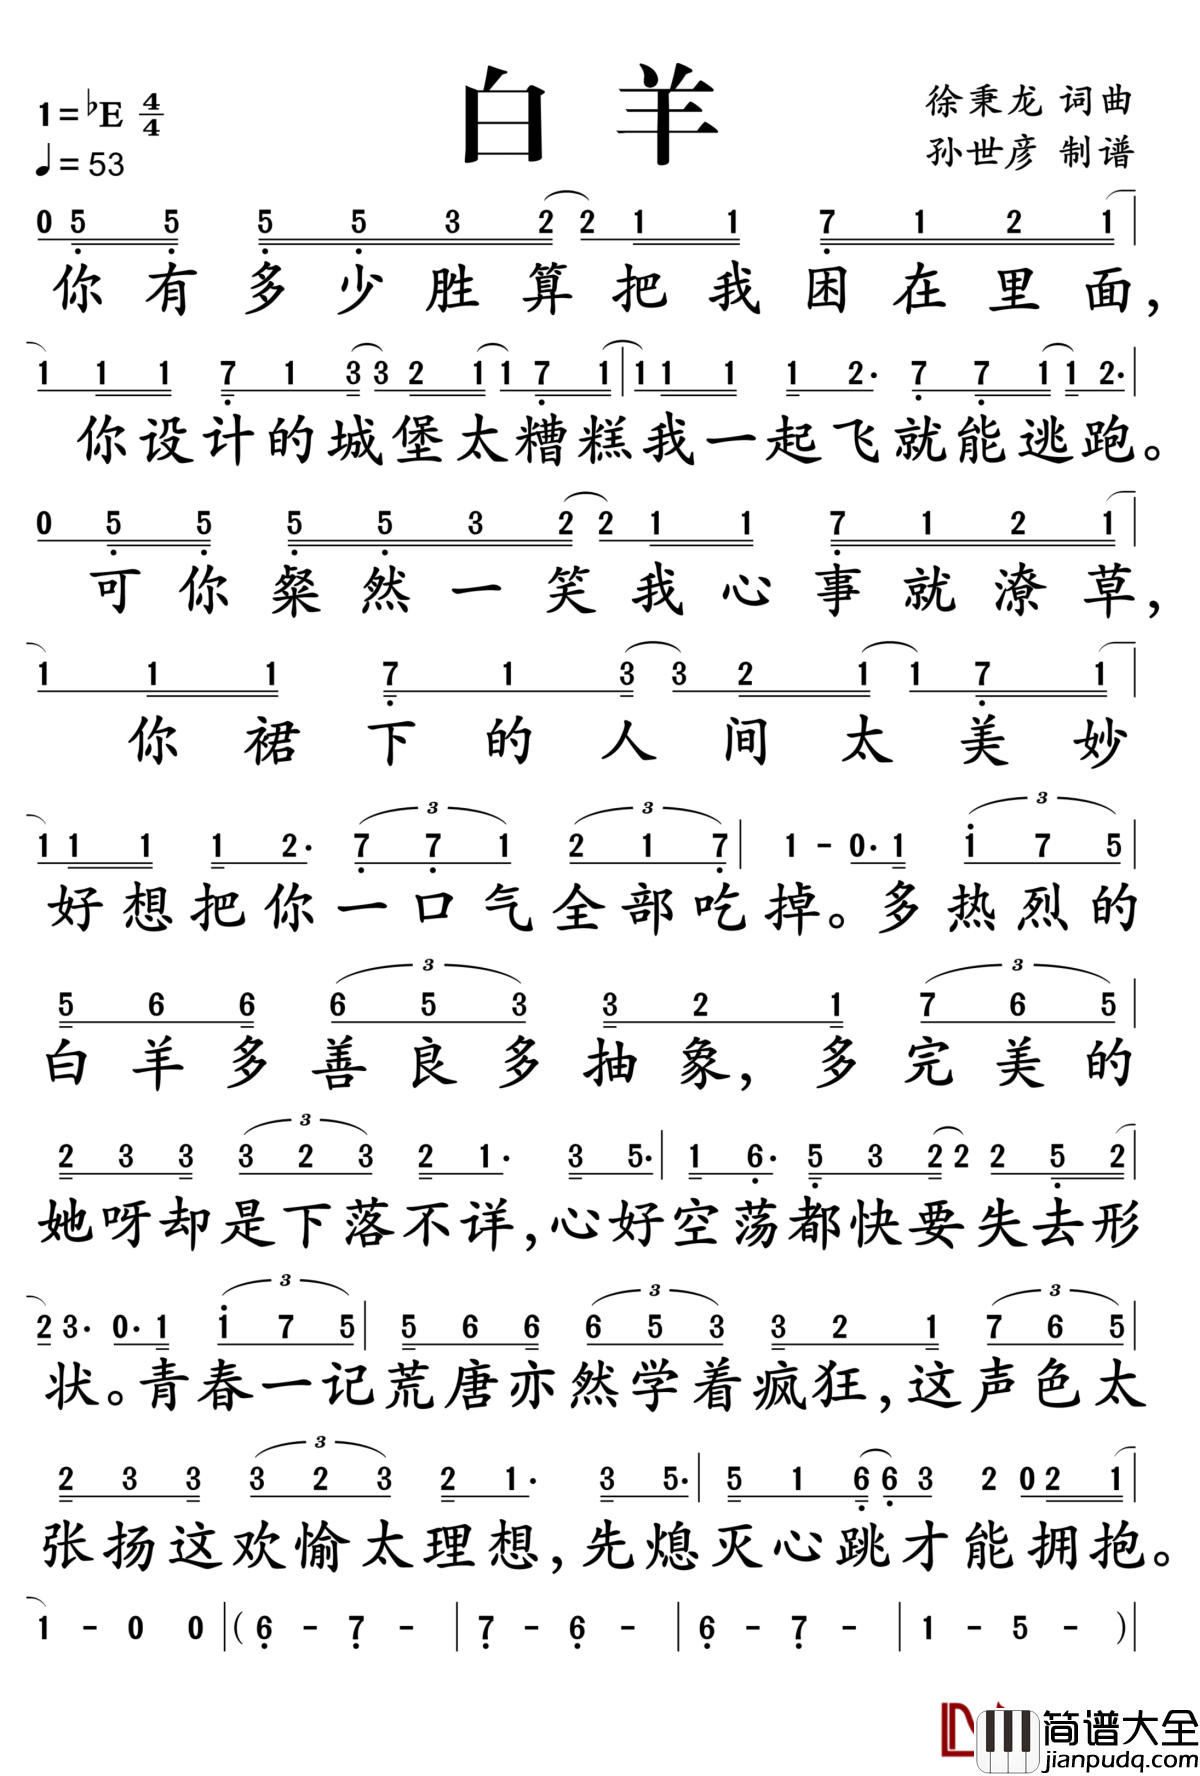 白羊
1=♭E 4/4
♩=53
徐秉龙 词曲
孙世彦 制谱
0 5 5 5 5 3 2 2 1 1 7 1 2 1 |
你有多少胜算把我困在里面,
1 1 1 7 1 3 3 2 1 1 7 1 | 1 1 1 1 2· 7 7 1 1 2· |
你设计的城堡太糟糕我一起飞就能逃跑。
0 5 5 5 5 3 2 2 1 1 7 1 2 1 |
可你粲然一笑我心事就潦草,
1 1 1 7 1 3 3 2 1 1 7 1 |
你裙下的人间太美妙
3 3
1 1 1 1 2· 7 7 1 2 1 7 | 1 - 0· 1 i 7 5 |
3
好想把你一口气全部吃掉。多热烈的
3 3
5 6 6 6 5 3 3 2 1 7 6 5 |
白羊多善良多抽象,多完美的
3
2 3 3 3 2 3 2 1· 3 5· | 1 6· 5 3 2 2 2 5 2 |
她呀却是下落不详,心好空荡都快要失去形
3 3 3
2 3· 0· 1 i 7 5 | 5 6 6 6 5 3 3 2 1 7 6 5 |
状。青春一记荒唐亦然学着疯狂,这声色太
3
2 3 3 3 2 3 2 1· 3 5· | 5 1 6 6 3 2 0 2 1 |
张扬这欢愉太理想,先熄灭心跳才能拥抱。
1 - 0 0 | ( 6 - 7 - | 7 - 6 - | 6 - 7 - | 1 - 5 - ) |
简谱大全
jianpudq.com